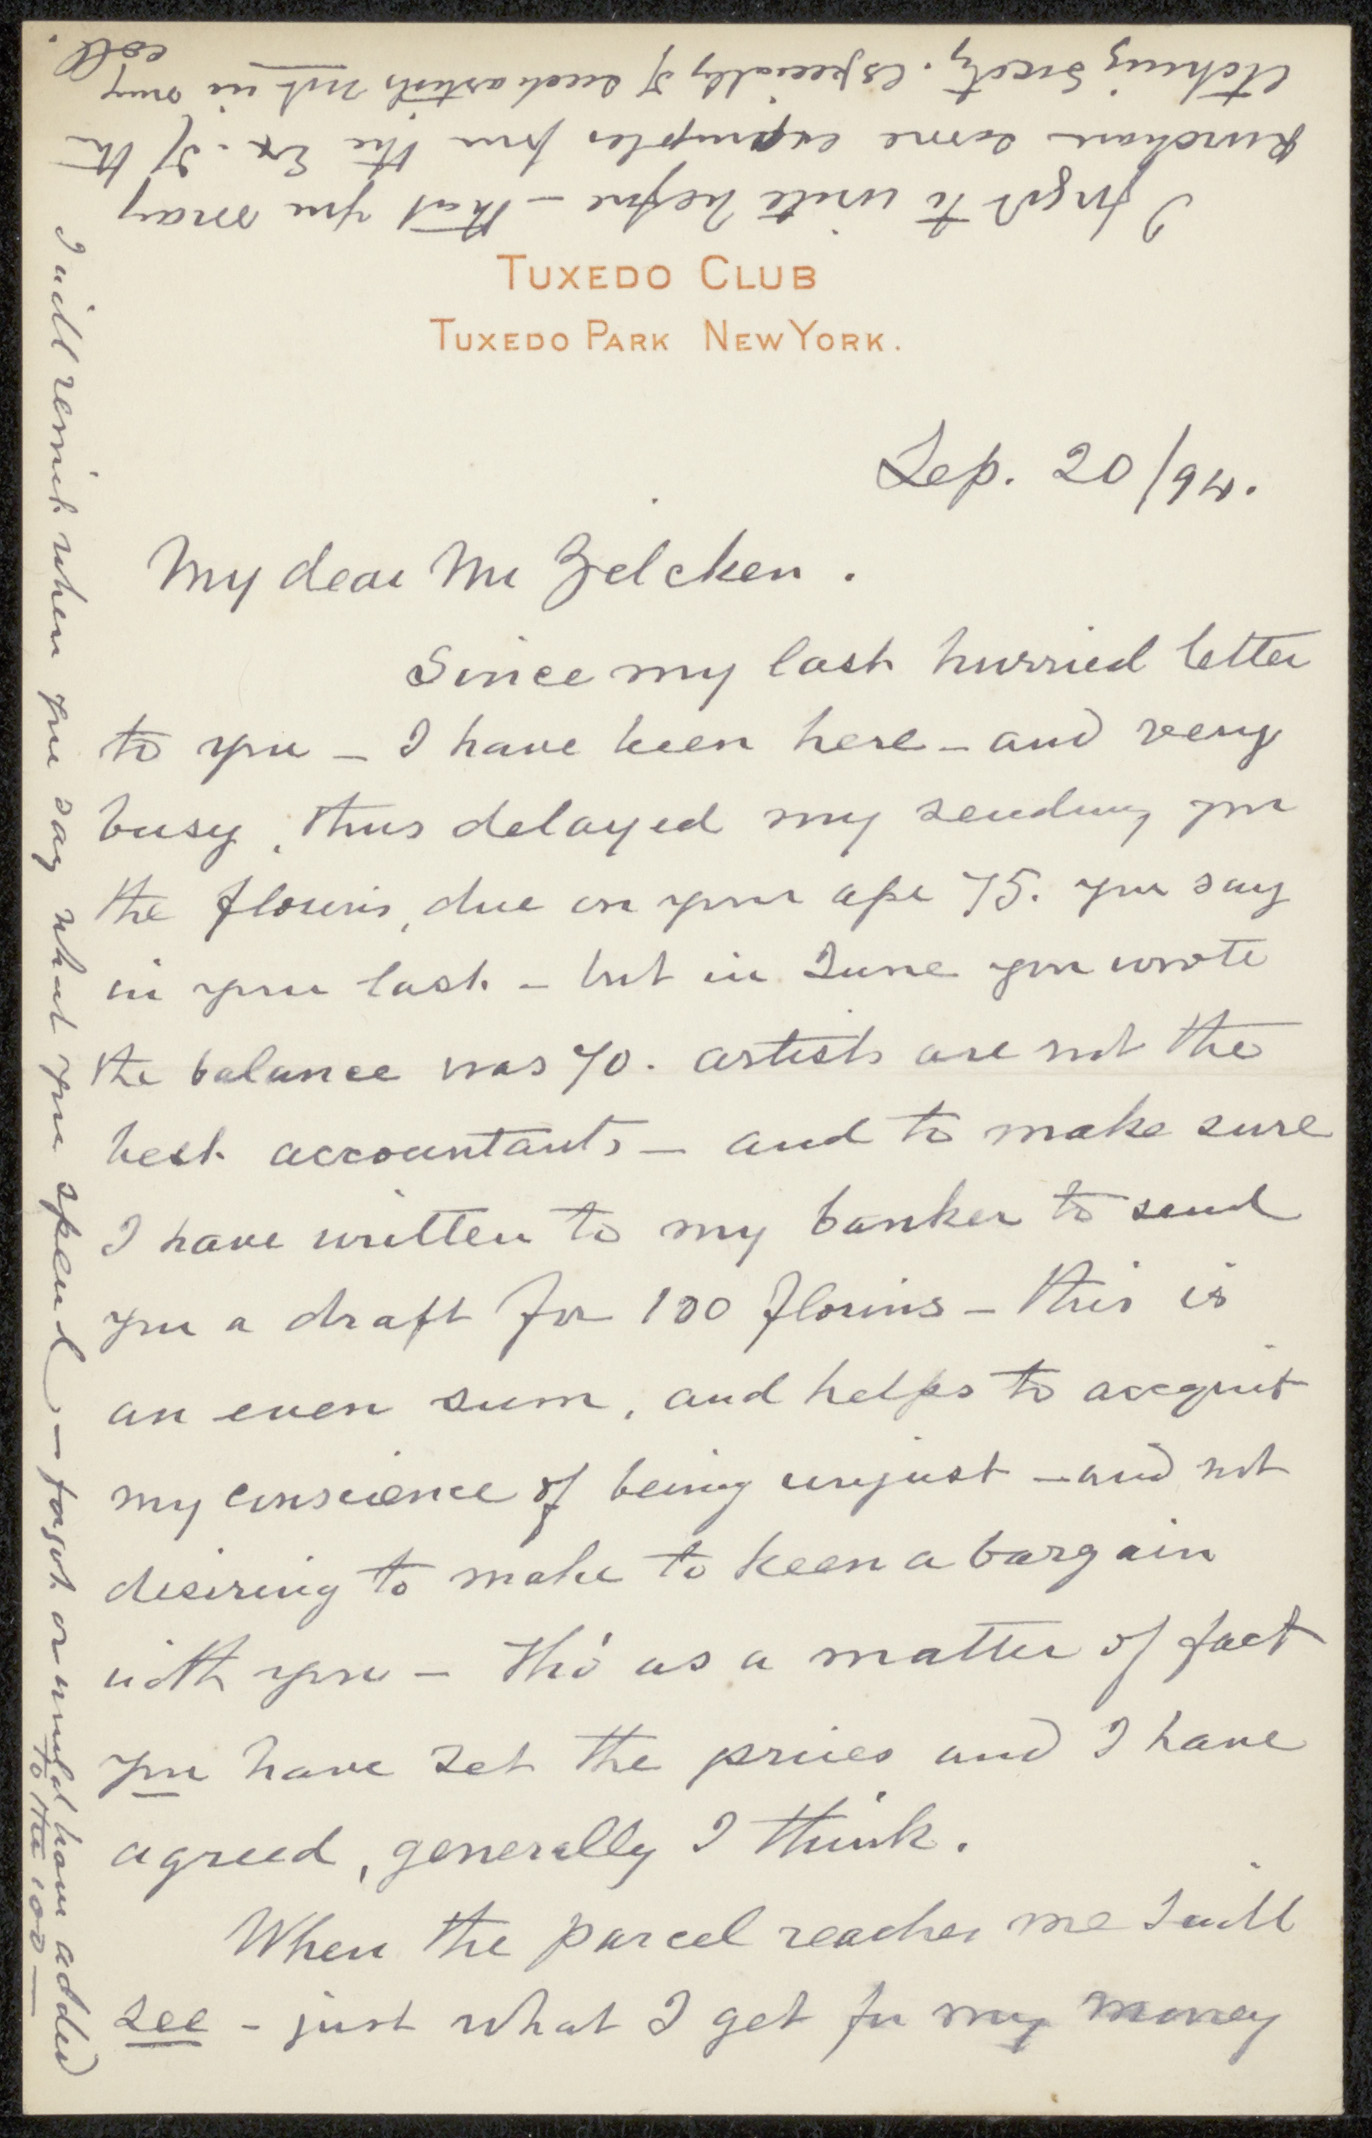 I forgot to write before – that you may
purchase some examples from the Ex. of the
Etching Society. especially of such artists not in my
coll.
TUXEDO CLUB
TUXEDO PARK NEW YORK.
Sep. 20/94.
My dear Mr Zilcken.
Since my last hurried letter
to you – I have been here – and very
busy, thus delayed my sending you
the florins, due on your a/c 75. you say
in your last – but in June you wrote
the balance was 70. artists are not the
best accountants – and to make sure
I have written to my banker to send
you a draft for 100 florins – this is
an even sum, and helps to acequit
my conscience of being unjust – and not
desiring to make to keen a bargain
with you – tho' as a matter of fact
you have set the prices and I have
agreed, generally I think.
When the parcel reaches me I will
see – just what I get for my money
I will remit when you say what you spend – forgot or would have added
to the 100 –